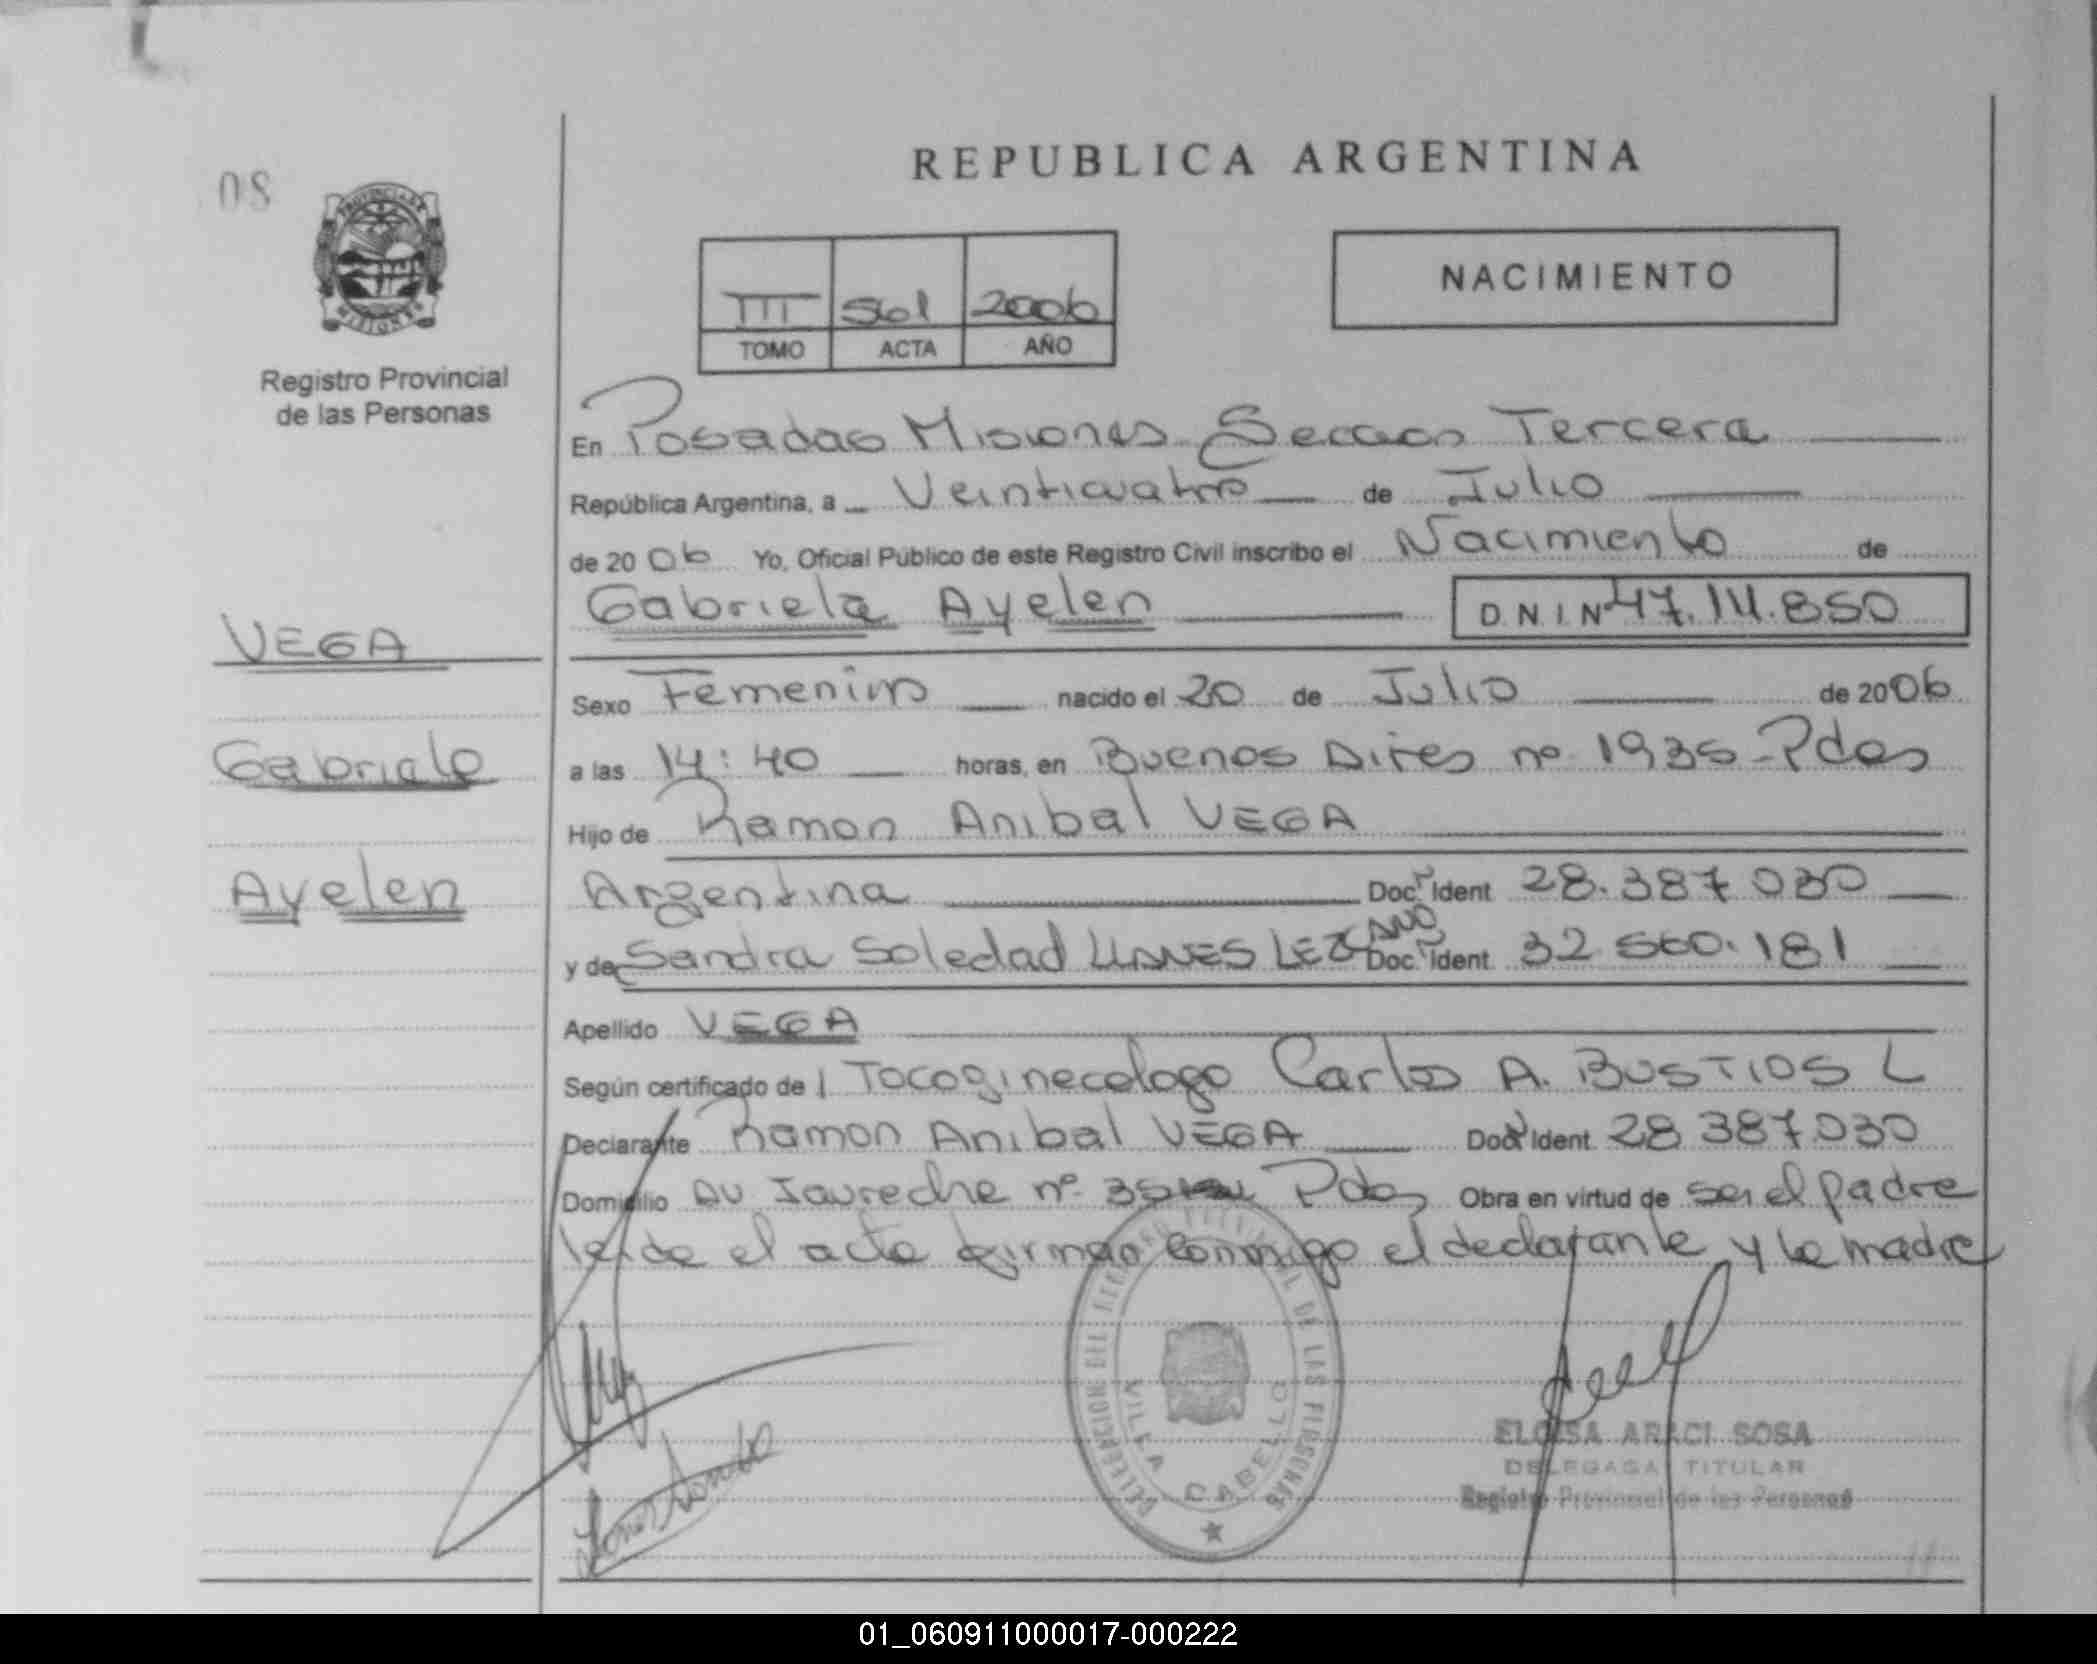 REPUBLICA ARGENTINA
08
PROVINCIA DE
MISIONES
Registro Provincial
de las Personas
III 561 2006
TOMO ACTA AÑO
NACIMIENTO
En Posadas Misiones Seccion Tercera
República Argentina, a Veinticuatro de Julio
de 2006 Yo, Oficial Público de este Registro Civil inscribo el Nacimiento de
Gabriela Ayelen D N I N
VEGA
Sexo Femenino nacido el 20 de Julio de 2006
Gabriela
a las 14:40 horas, en Buenos Aires nº 1935 - Pdas
Hijo de Ramon Anibal VEGA
Ayelen
Argentina Doc. Ident 28.387.030
y de Sandra Soledad LLANES LEZCANO Doc. Ident 32 560.181
Apellido VEGA
Según certificado de Tocoginecologo Carlos A. BUSTIOS L
Declarante Ramon Anibal VEGA Doc Ident 28 387.030
Domicilio Av Jaureche nº Pdas Obra en virtud de ser el padre
leida el acta firman conmigo el declarante y la madre
DELEGACION DEL REGISTRO PROVINCIAL DE LAS PERSONAS
VILLA CABELLO
ELOISA ARACI SOSA
DELEGADA TITULAR
Registro Provincial de las Personas
01_060911000017-000222